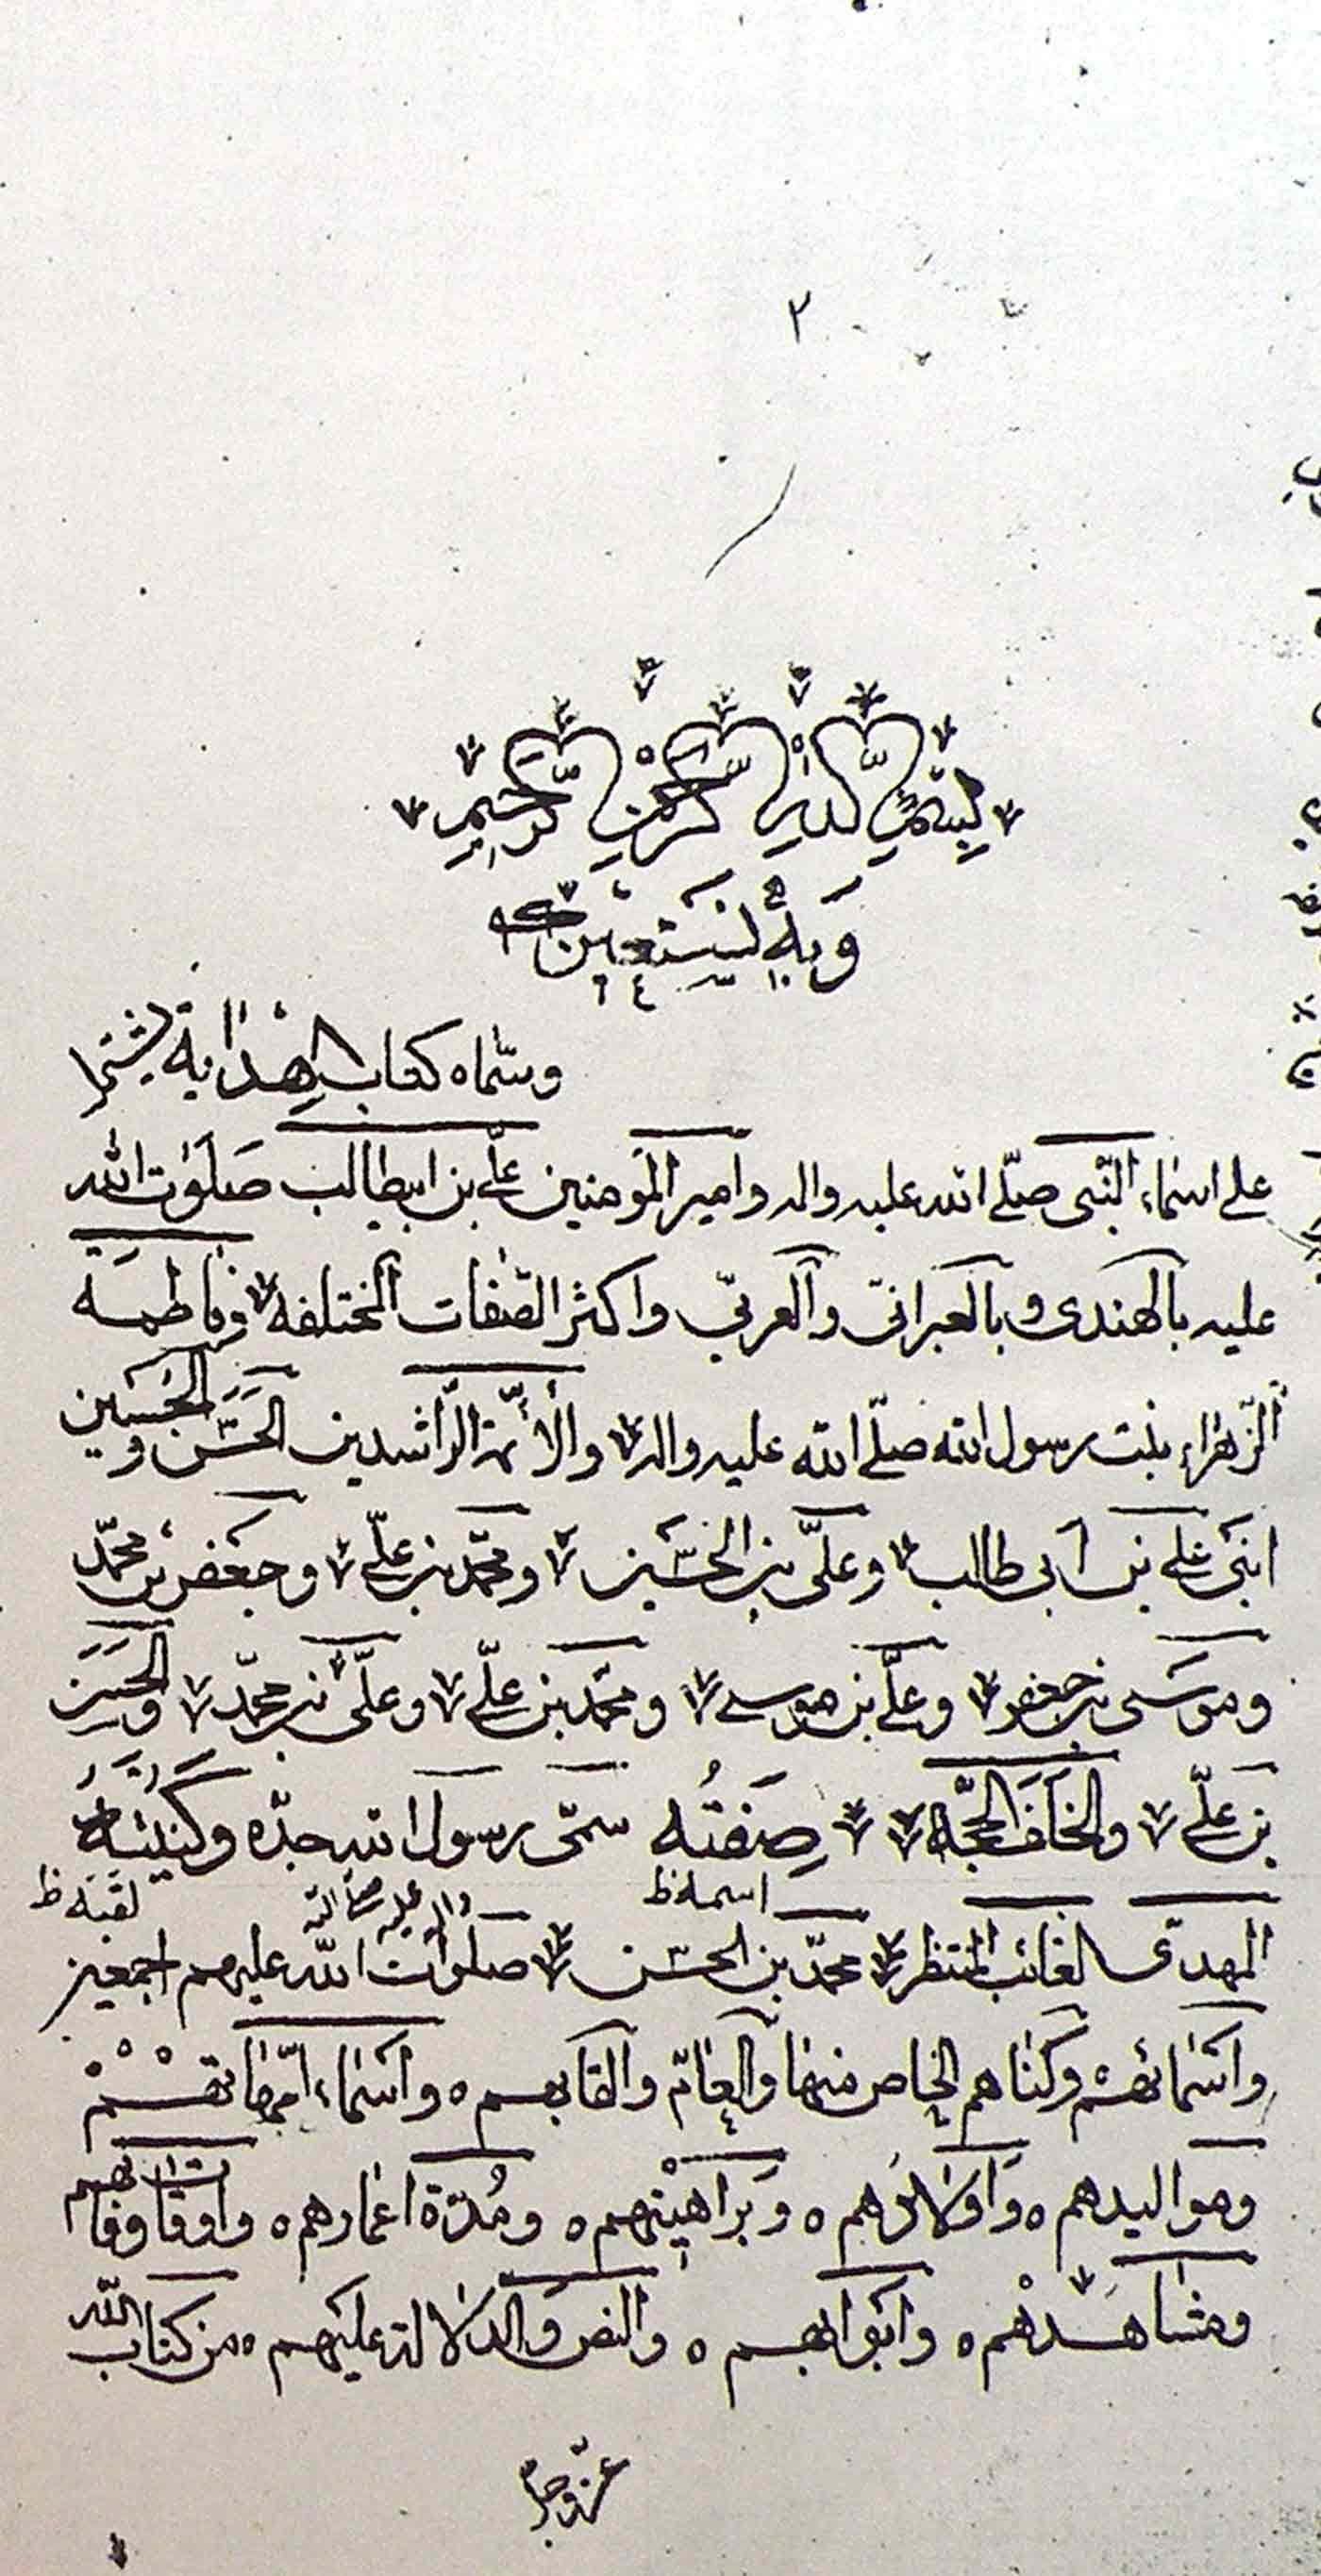 ٢
بسم الله الرحمن الرحيم
وبه نستعين
وسماه كتاب الهداية يشتمل
على اسماء النبى صلى الله عليه واله وامير المؤمنين على بن ابيطالب صلوات الله
عليه بالهندى وبالعبرانى والعربى واكثر الصفات المختلفه وفاطمه
الزهراء بنت رسول الله صلى الله عليه واله والأئمة الراشدين الحسن والحسين
ابنى على بن أبى طالب وعلى بن الحسين ومحمد بن على وجعفر بن محمد
وموسى بن جعفر وعلى بن موسى ومحمد بن على وعلى بن محمد والحسن
بن على والخلف الحجة صفته سمى رسول الله جده وكنيته
اسمه ظ واله عليه صلى الله لقبه ظ
المهدى الغائب المنتظر محمد بن الحسن صلوات الله عليهم اجمعين
واسمائهم وكناهم الخاص منها والعام والقابهم واسماء امهاتهم
ومواليدهم واولادهم وبراهينهم ومدة اعمارهم واوقات وفاتهم
ومشاهدهم وابوابهم والنص والدلالة عليهم من كتاب الله
عز وجل